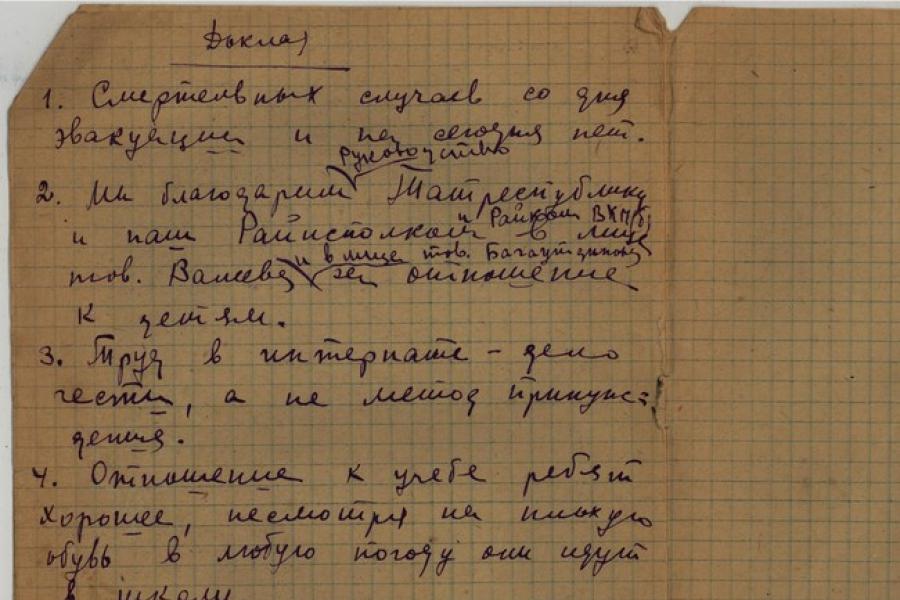 Доклад
1. Смертельных случаев со дня
эвакуации и по сегодня нет.
руководство
2. Мы благодарим Татреспублику
и Райком ВКП(б)
и наш Райисполком в лице
и в лице тов. Багаутдинова
тов. Валеева за отношение
к детям.
3. Труд в интернате - дело
чести, а не метод принуж=
дения.
4. Отношение к учебе ребят
хорошее, несмотря на плохую
обувь в любую погоду они идут
в школу